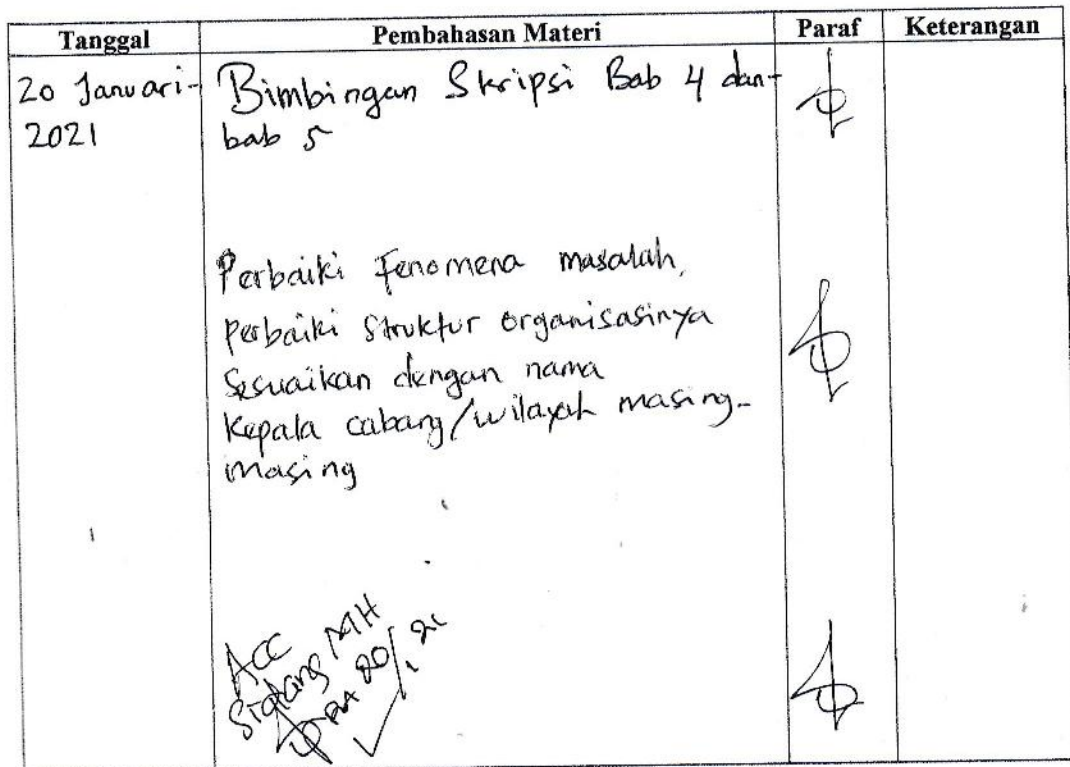 Tanggal Pembahasan Materi Paraf Keterangan
20 Januari- Bimbingan Skripsi Bab 4 dan
2021 bab 5
Perbaiki Fenomena masalah,
perbaiki struktur organisasinya
Sesuaikan dengan nama
Kepala cabang/wilayah masing-
masing
ACC
Sidang
20/1 21